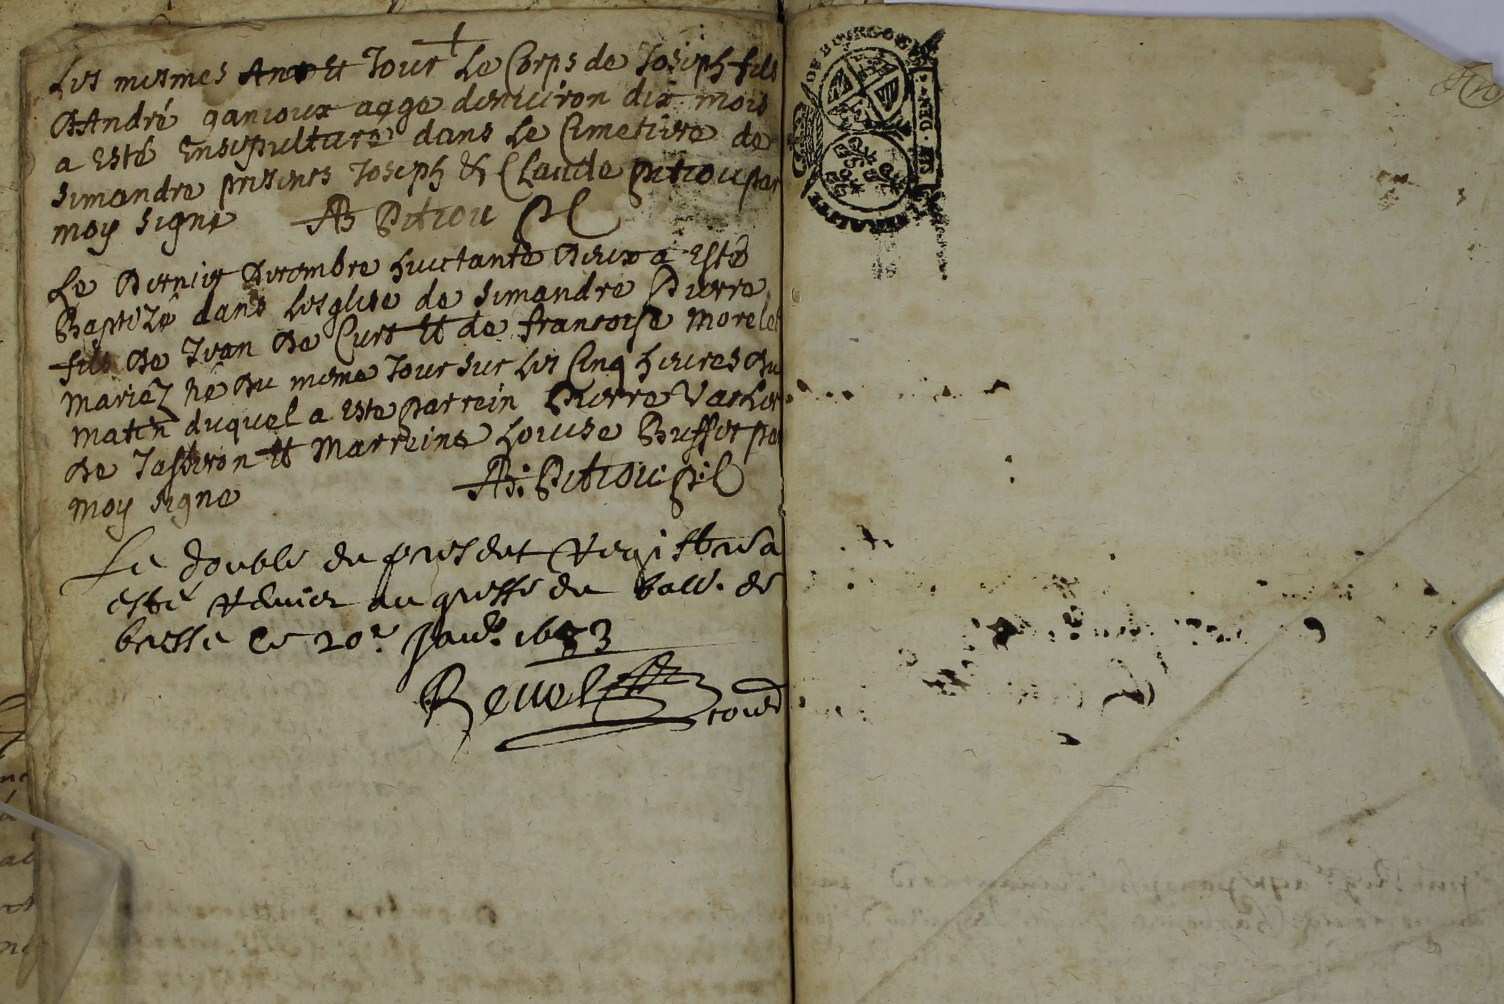 Les mesmes An et Jour Le Corps de Joseph fils
D'André ganioux agge denuiron dix mois
a esté ensepulturé dans Le Cimetiere de
simandre presents Joseph & Claude Pitiou par
moy signé AB Pitiou
Le Dernier Decembre huictante Deux a Esté
Baptizé dans Lesglise de simandre Pierre
fils De Jvan De Curt et de francoise Morelet
mariéz né du mesme Jour sur les Cinq heures du
matin duquel a este parrein Pierre
De Jasseron et Marreine Louise Buffet par
moy signé AB: Pitiou
Le double du present Registre a
esté remier au greffe du baill. de
bresse ce 20e Janv. 1683
Reuel